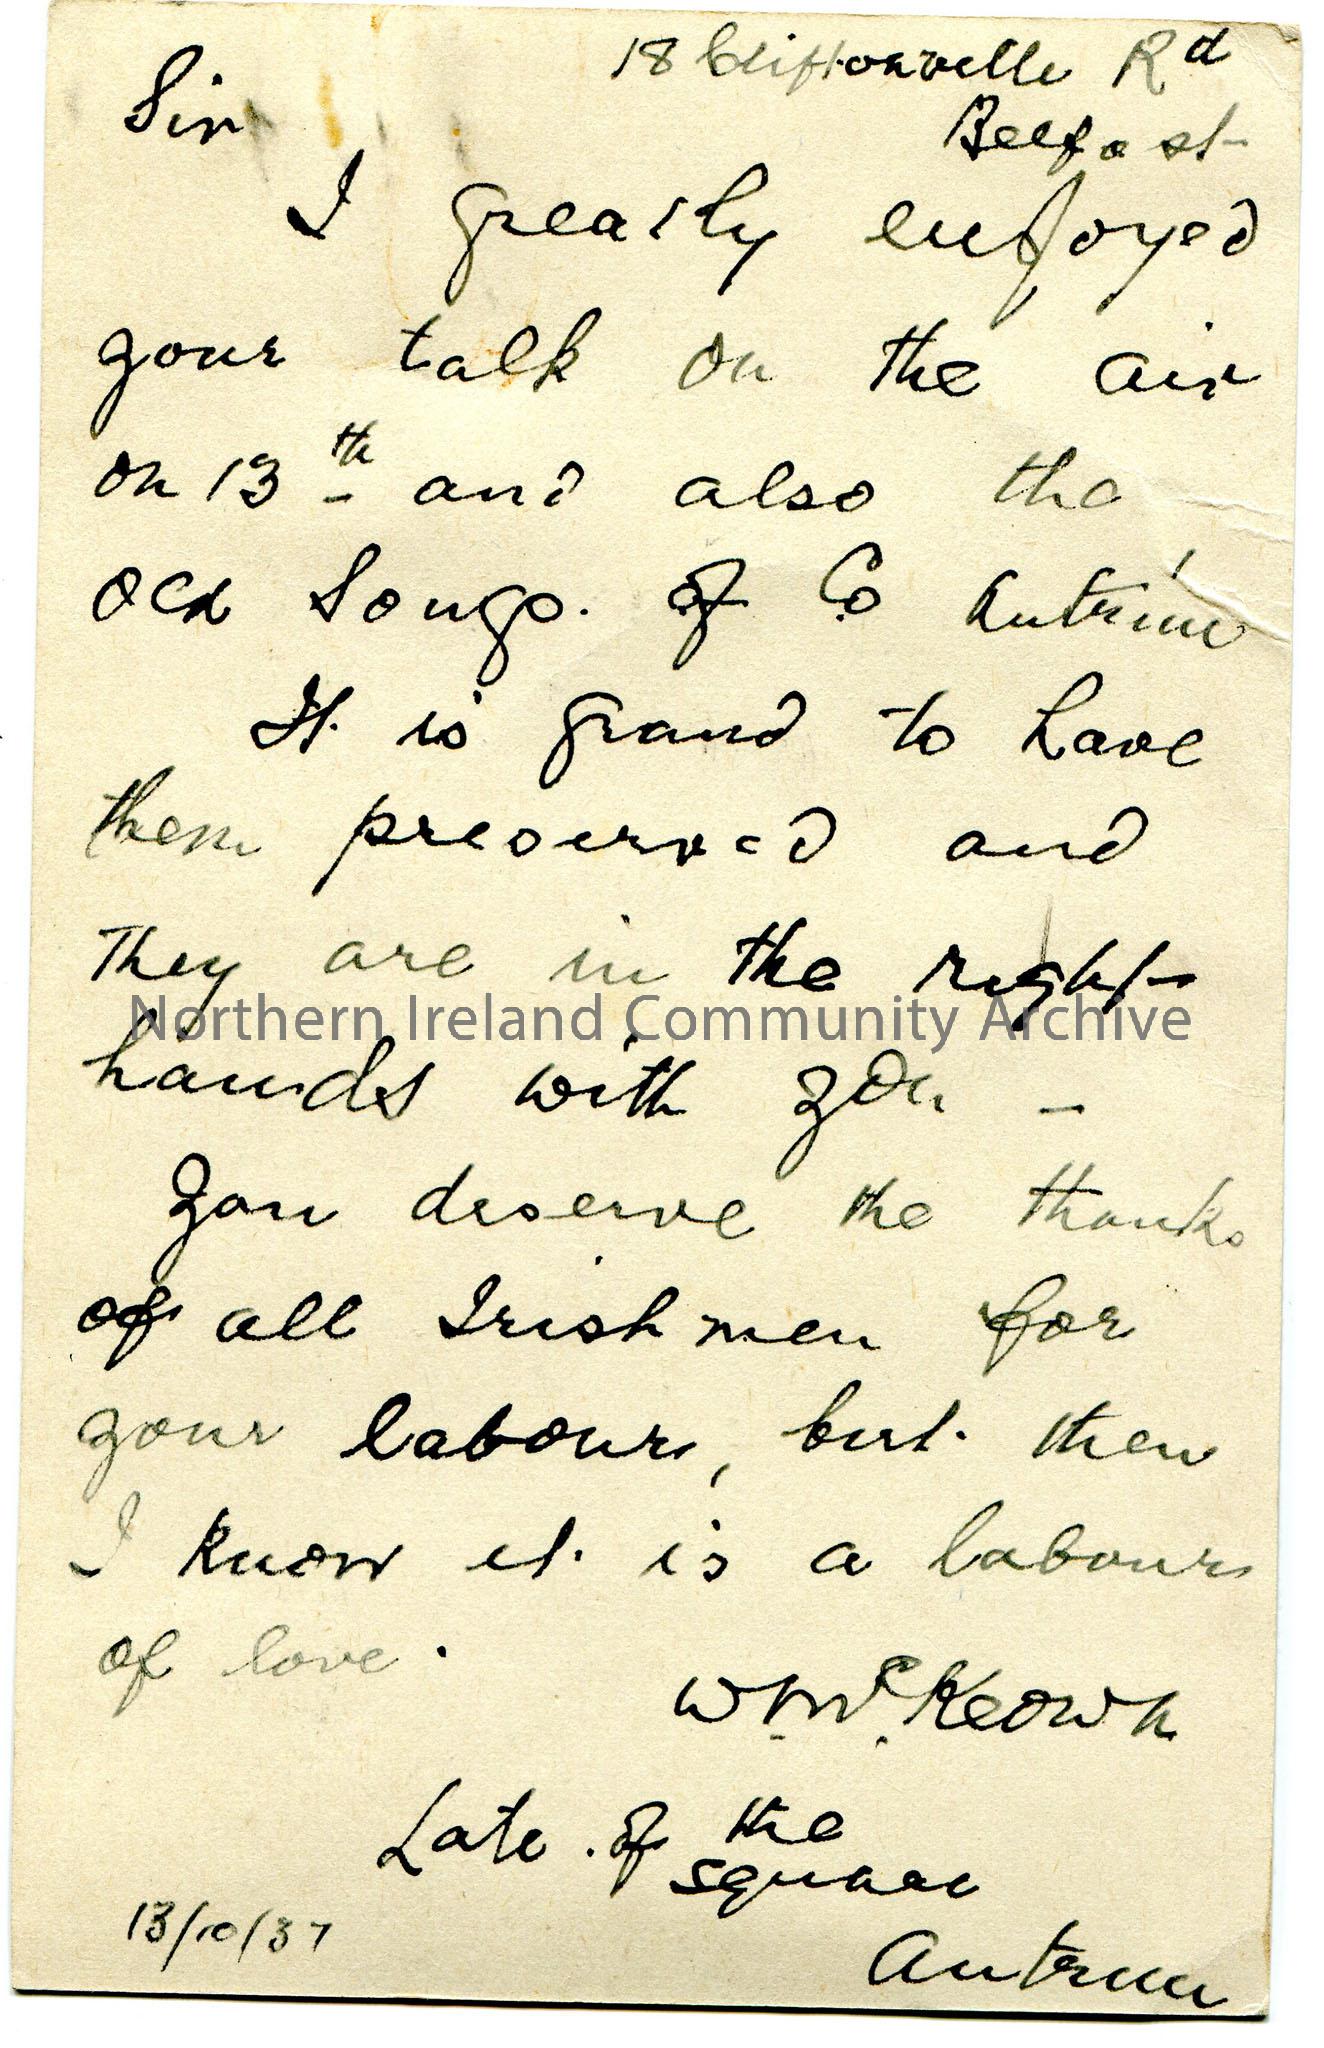 18 Cliftonville Rd
Belfast
Sir
I greatly enjoyed
your talk on the air
on 13th and also the
old songs. of Co Antrim
It is grand to have
them preserved and
They are in the right
Northern Ireland Community Archive
hands with you -
You deserve the thanks
of all Irishmen for
your labour, but then
I know it is a labour
of love.
W McKeown
Late of the
square
Antrim
13/10/37